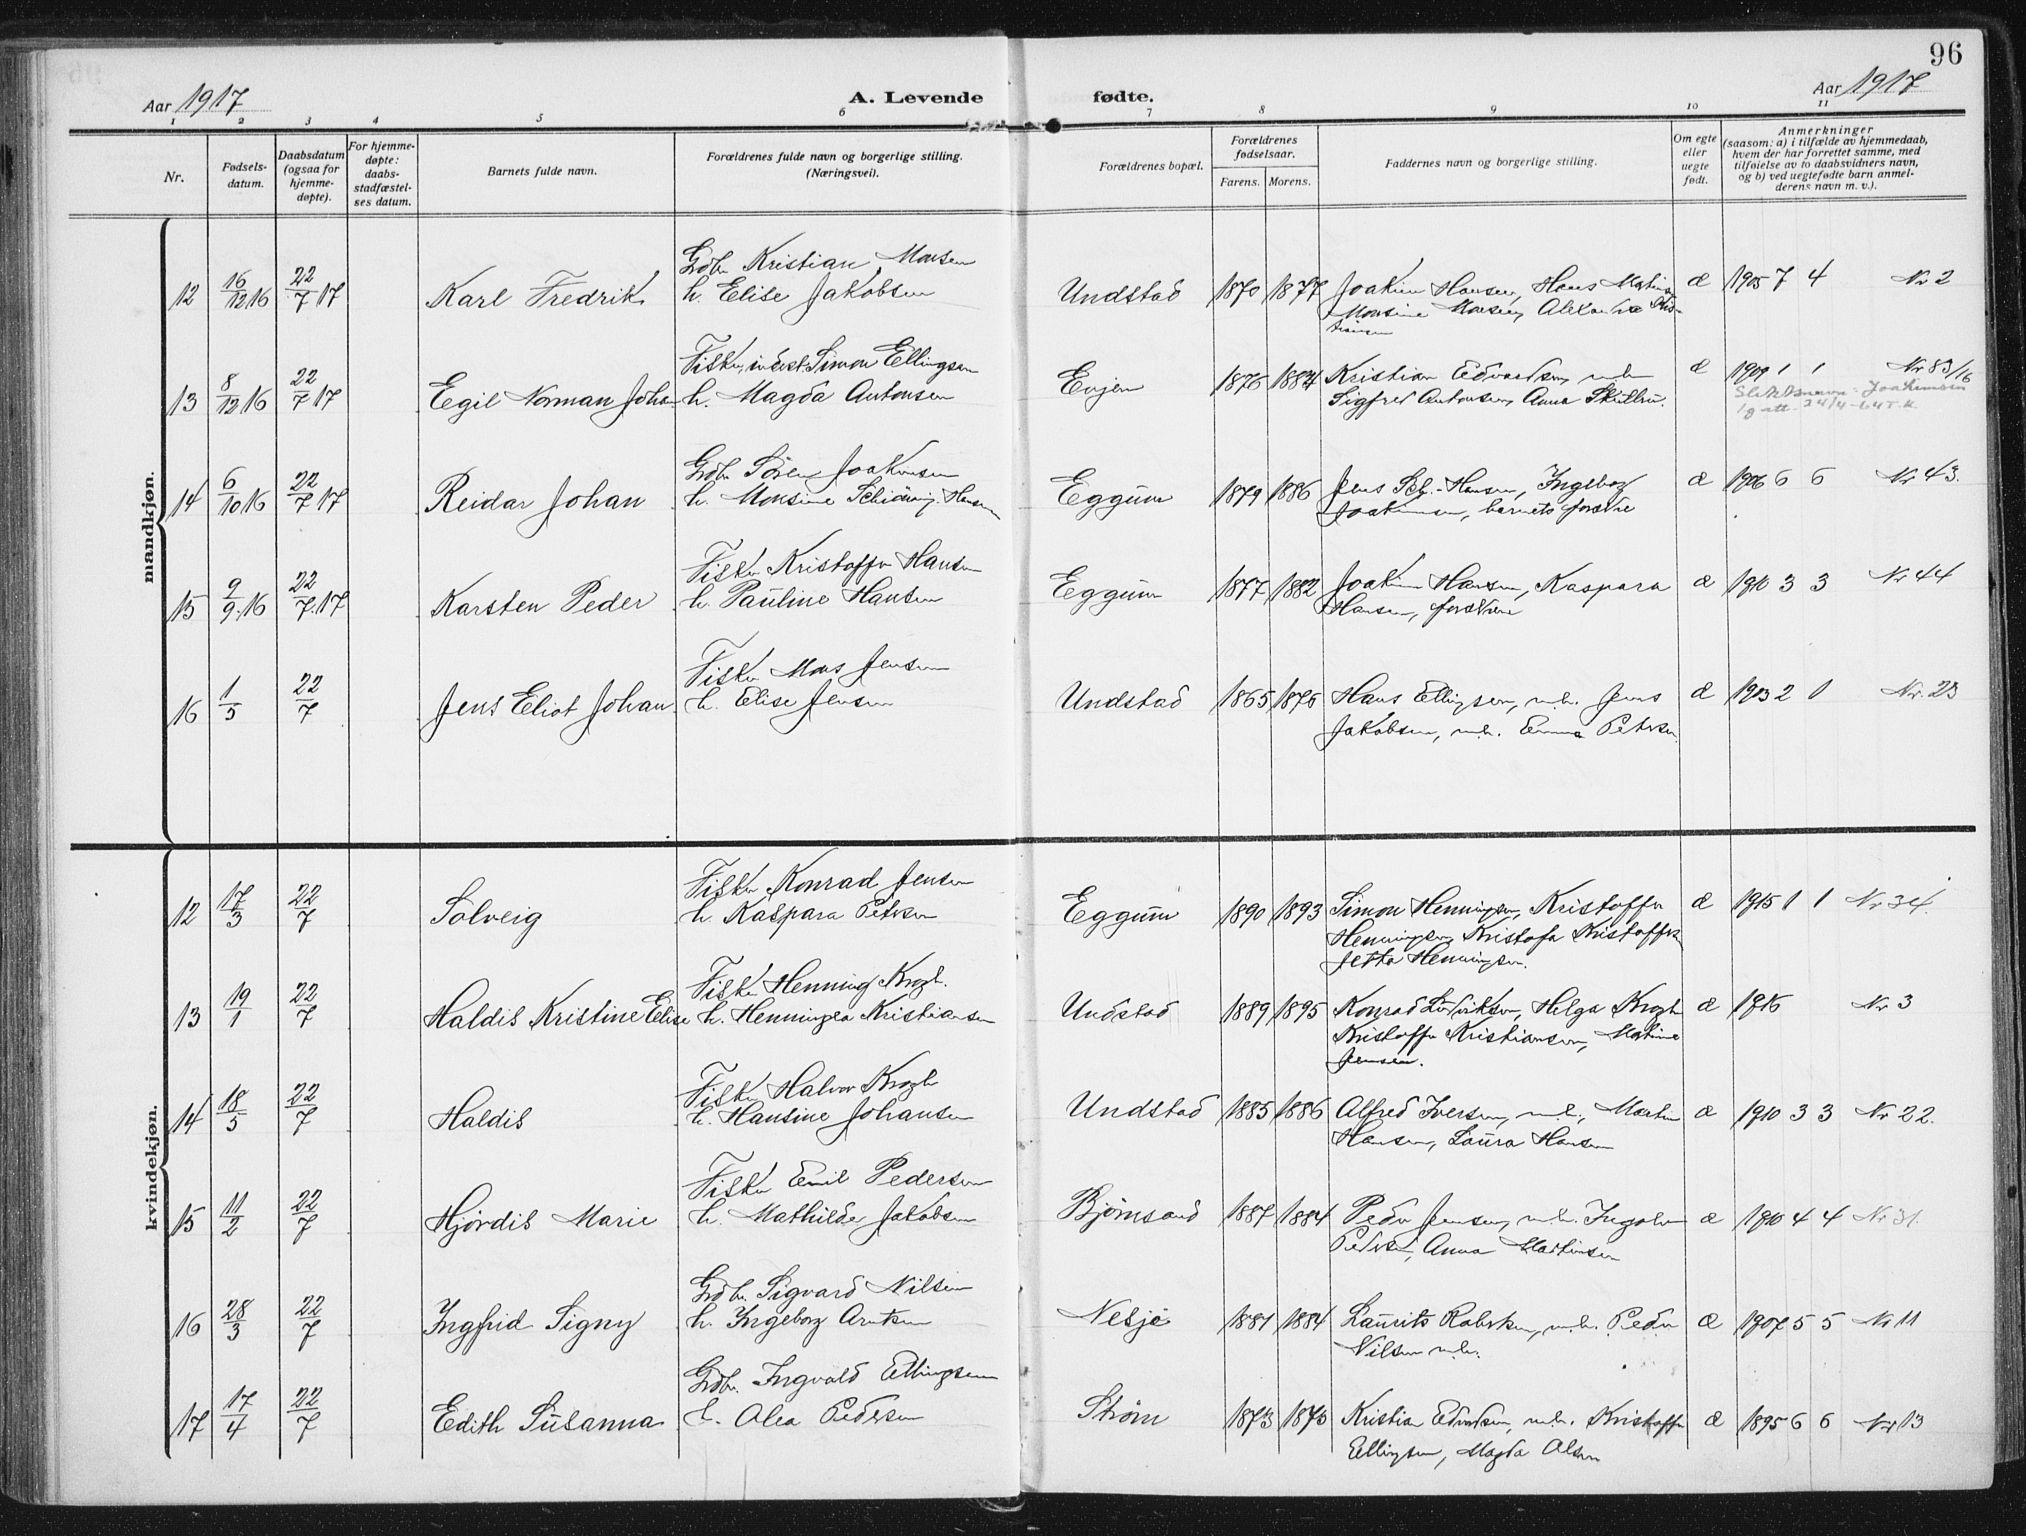 96
Aar 1917 A. Levende fødte. Aar 1917
1 2 3 4 5 6 7 8 9 10 11
Nr.
Fødsels-
datum.
Daabsdatum
(ogsaa for
hjemme-
døpte).
For hjemme-
døpte:
daabs-
stadfæstel-
ses datum.
Barnets fulde navn.
Forældrenes fulde navn og borgerlige stilling.
(Næringsvei).
Forældrenes bopæl.
Forældrenes
fødselsaar.
Farens. Morens.
Faddernes navn og borgerlige stilling.
Om egte
eller
uegte
født.
Anmerkninger
(saasom: a) i tilfælde av hjemmedaab,
hvem der har forrettet samme, med
tilføielse av to daabsvidners navn,
og b) ved uegtefødte barn anmel-
derens navn m. v.).
mandkjøn.
Gdbr. Kristian Monsen
12 16/12 16 22/7 17 Karl Fredrik h. Elise Jakobsen Undstad 1870 1877 Joakim Hansen, Hans Martin æ 1905 7 4 Nr 2
Monsine Monsen, Alexandra
Fisker, inderst Simon Ellingsen
13 8/12 16 22/7 17 Egil Norman Johan h. Magda Antonsen Evjen 1876 1884 Kristian Edvardsen m.h. æ 1909 1 1 Nr 83/16
Sigfred Antonsen, Anna
Slektsnavn: Joakimsen
24/4-64 T.K.
Gdbr. Sören Joakimsen
14 6/10 16 22/7 17 Reidar Johan h. Monsine Schiöning Hansen Eggum 1879 1886 Jens Sch. Hansen, Ingeborg æ 1906 6 6 Nr 43.
Joakimsen, barnets forældre
Fisker Kristoffer Hansen
15 9/9 16 22/7 17 Karsten Peder h. Pauline Hansen Eggum 1877 1882 Joakim Hansen, Kaspara æ 1910 3 3 Nr 44
Hansen, forældrene
Fisker Mons Jensen
16 1/5 22/7 Jens Eliot Johan h. Elise Jensen Undstad 1865 1875 Hans Ellingsen, m.h. Jens æ 1903 2 1 Nr. 23
Jakobsen, m.h. Emma Petersen
kvindekjøn.
Fisker Konrad Jensen
12 17/3 22/7 Solveig h. Kaspara Petersen Eggum 1890 1893 Simon Henningsen, Kristoffer æ 1915 1 1 Nr 34.
Henningsen, Kristofa Kristoffersen
Jetta Henningsen.
Fisker Henning Krogh.
13 19/1 22/7 Haldis Kristine Elise h. Henningea Kristiansen Undstad 1889 1895 Konrad Ludviksen, Helga Krogh æ 1916 Nr 3
Kristoffer Kristiansen, Martine
Jensen.
Fisker Halvor Krogh
14 18/5 22/7 Haldis h. Hansine Johansen Undstad 1885 1886 Alfred Iversen, m.h., Martin æ 1910 3 3 Nr 22.
Hansen, Laura Hansen
Fisker Emil Pedersen
15 11/2 22/7 Hjørdis Marie h. Mathilde Jakobsen Bjørnsand 1887 1884 Peder Jensen, m.h. Ingolv æ 1910 4 4 Nr 31.
Pedersen, Anna Martinsen
Gdbr. Sigvard Nilsen
16 28/3 22/7 Ingfrid Signy h. Ingeborg Arntsen Nesje 1881 1884 Laurits Robertsen, m.h. Peder æ 1907 5 5 Nr 11
Nilsen m.h.
Gdbr. Ingvald Ellingsen
17 17/4 22/7 Edith Susanna h. Alea Pedersen Strøm 1873 1875 Kristian Edvardsen, m.h. Kristoffer æ 1895 6 6 Nr 13
Ellingsen, Magda Olsen